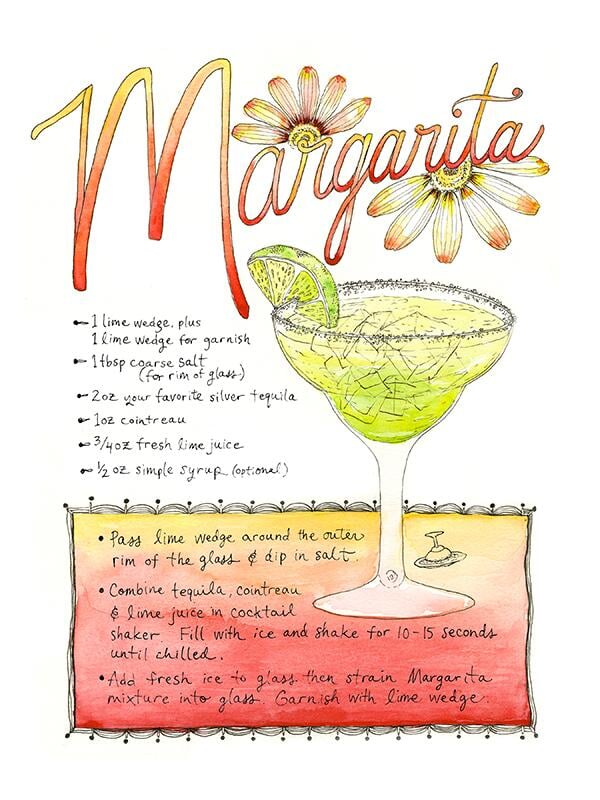 Margarita
1 lime wedge, plus
1 lime wedge for garnish
1 tbsp coarse salt
(for rim of glass)
2oz your favorite silver tequila
1oz cointreau
3/4oz fresh lime juice
1/2 oz simple syrup (optional)
• Pass lime wedge around the outer
rim of the glass & dip in salt.
• Combine tequila, cointreau
& lime juice in cocktail
shaker. Fill with ice and shake for 10-15 seconds
until chilled.
• Add fresh ice to glass then strain Margarita
mixture into glass. Garnish with lime wedge.